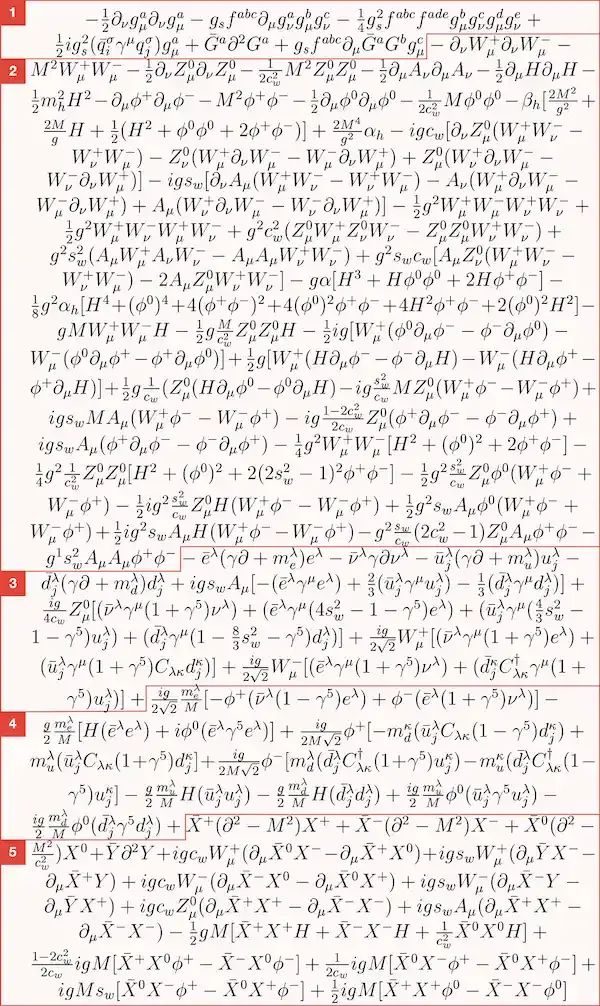 1
-\frac{1}{2}\partial_\nu g^a_\mu \partial_\nu g^a_\mu - g_s f^{abc}\partial_\mu g^a_\nu g^b_\mu g^c_\nu - \frac{1}{4}g^2_s f^{abc} f^{ade} g^b_\mu g^c_\nu g^d_\mu g^e_\nu +
\frac{1}{2}ig^2_s(\bar{q}^\sigma_i \gamma^\mu q^\sigma_j)g^a_\mu + \bar{G}^a \partial^2 G^a + g_s f^{abc}\partial_\mu \bar{G}^a G^b g^c_\mu - \partial_\nu W^+_\mu \partial_\nu W^-_\mu -
2
M^2 W^+_\mu W^-_\mu - \frac{1}{2}\partial_\nu Z^0_\mu \partial_\nu Z^0_\mu - \frac{1}{2c^2_w}M^2 Z^0_\mu Z^0_\mu - \frac{1}{2}\partial_\mu A_\nu \partial_\mu A_\nu - \frac{1}{2}\partial_\mu H \partial_\mu H -
\frac{1}{2}m^2_h H^2 - \partial_\mu \phi^+ \partial_\mu \phi^- - M^2 \phi^+ \phi^- - \frac{1}{2}\partial_\mu \phi^0 \partial_\mu \phi^0 - \frac{1}{2c^2_w}M \phi^0 \phi^0 - \beta_h[\frac{2M^2}{g^2} +
\frac{2M}{g}H + \frac{1}{2}(H^2 + \phi^0 \phi^0 + 2\phi^+ \phi^-)] + \frac{2M^4}{g^2}\alpha_h - igc_w[\partial_\nu Z^0_\mu(W^+_\mu W^-_\nu -
W^+_\nu W^-_\mu) - Z^0_\nu(W^+_\mu \partial_\nu W^-_\mu - W^-_\mu \partial_\nu W^+_\mu) + Z^0_\mu(W^+_\nu \partial_\nu W^-_\mu -
W^-_\nu \partial_\nu W^+_\mu)] - igs_w[\partial_\nu A_\mu(W^+_\mu W^-_\nu - W^+_\nu W^-_\mu) - A_\nu(W^+_\mu \partial_\nu W^-_\mu -
W^-_\mu \partial_\nu W^+_\mu) + A_\mu(W^+_\nu \partial_\nu W^-_\mu - W^-_\nu \partial_\nu W^+_\mu)] - \frac{1}{2}g^2 W^+_\mu W^-_\mu W^+_\nu W^-_\nu +
\frac{1}{2}g^2 W^+_\mu W^-_\nu W^+_\mu W^-_\nu + g^2 c^2_w(Z^0_\mu W^+_\mu Z^0_\nu W^-_\nu - Z^0_\mu Z^0_\mu W^+_\nu W^-_\nu) +
g^2 s^2_w(A_\mu W^+_\mu A_\nu W^-_\nu - A_\mu A_\mu W^+_\nu W^-_\nu) + g^2 s_w c_w[A_\mu Z^0_\nu(W^+_\mu W^-_\nu -
W^+_\nu W^-_\mu) - 2A_\mu Z^0_\mu W^+_\nu W^-_\nu] - g\alpha[H^3 + H\phi^0 \phi^0 + 2H\phi^+ \phi^-] -
\frac{1}{8}g^2 \alpha_h[H^4 + (\phi^0)^4 + 4(\phi^+ \phi^-)^2 + 4(\phi^0)^2 \phi^+ \phi^- + 4H^2 \phi^+ \phi^- + 2(\phi^0)^2 H^2] -
gMW^+_\mu W^-_\mu H - \frac{1}{2}g\frac{M}{c^2_w}Z^0_\mu Z^0_\mu H - \frac{1}{2}ig[W^+_\mu(\phi^0 \partial_\mu \phi^- - \phi^- \partial_\mu \phi^0) -
W^-_\mu(\phi^0 \partial_\mu \phi^+ - \phi^+ \partial_\mu \phi^0)] + \frac{1}{2}g[W^+_\mu(H\partial_\mu \phi^- - \phi^- \partial_\mu H) - W^-_\mu(H\partial_\mu \phi^+ -
\phi^+ \partial_\mu H)] + \frac{1}{2}g\frac{1}{c_w}(Z^0_\mu(H\partial_\mu \phi^0 - \phi^0 \partial_\mu H) - ig\frac{s^2_w}{c_w}MZ^0_\mu(W^+_\mu \phi^- - W^-_\mu \phi^+) +
igs_w MA_\mu(W^+_\mu \phi^- - W^-_\mu \phi^+) - ig\frac{1-2c^2_w}{2c_w}Z^0_\mu(\phi^+ \partial_\mu \phi^- - \phi^- \partial_\mu \phi^+) +
igs_w A_\mu(\phi^+ \partial_\mu \phi^- - \phi^- \partial_\mu \phi^+) - \frac{1}{4}g^2 W^+_\mu W^-_\mu[H^2 + (\phi^0)^2 + 2\phi^+ \phi^-] -
\frac{1}{4}g^2 \frac{1}{c^2_w}Z^0_\mu Z^0_\mu[H^2 + (\phi^0)^2 + 2(2s^2_w - 1)^2 \phi^+ \phi^-] - \frac{1}{2}g^2 \frac{s^2_w}{c_w}Z^0_\mu \phi^0(W^+_\mu \phi^- +
W^-_\mu \phi^+) - \frac{1}{2}ig^2 \frac{s^2_w}{c_w}Z^0_\mu H(W^+_\mu \phi^- - W^-_\mu \phi^+) + \frac{1}{2}g^2 s_w A_\mu \phi^0(W^+_\mu \phi^- +
W^-_\mu \phi^+) + \frac{1}{2}ig^2 s_w A_\mu H(W^+_\mu \phi^- - W^-_\mu \phi^+) - g^2 \frac{s_w}{c_w}(2c^2_w - 1)Z^0_\mu A_\mu \phi^+ \phi^- -
g^1 s^2_w A_\mu A_\mu \phi^+ \phi^- - \bar{e}^\lambda(\gamma\partial + m^\lambda_e)e^\lambda - \bar{\nu}^\lambda \gamma\partial \nu^\lambda - \bar{u}^\lambda_j(\gamma\partial + m^\lambda_u)u^\lambda_j -
3
\bar{d}^\lambda_j(\gamma\partial + m^\lambda_d)d^\lambda_j + igs_w A_\mu[-(\bar{e}^\lambda \gamma^\mu e^\lambda) + \frac{2}{3}(\bar{u}^\lambda_j \gamma^\mu u^\lambda_j) - \frac{1}{3}(\bar{d}^\lambda_j \gamma^\mu d^\lambda_j)] +
\frac{ig}{4c_w}Z^0_\mu[(\bar{\nu}^\lambda \gamma^\mu(1 + \gamma^5)\nu^\lambda) + (\bar{e}^\lambda \gamma^\mu(4s^2_w - 1 - \gamma^5)e^\lambda) + (\bar{u}^\lambda_j \gamma^\mu(\frac{4}{3}s^2_w -
1 - \gamma^5)u^\lambda_j) + (\bar{d}^\lambda_j \gamma^\mu(1 - \frac{8}{3}s^2_w - \gamma^5)d^\lambda_j)] + \frac{ig}{2\sqrt{2}}W^+_\mu[(\bar{\nu}^\lambda \gamma^\mu(1 + \gamma^5)e^\lambda) +
(\bar{u}^\lambda_j \gamma^\mu(1 + \gamma^5)C_{\lambda\kappa}d^\kappa_j)] + \frac{ig}{2\sqrt{2}}W^-_\mu[(\bar{e}^\lambda \gamma^\mu(1 + \gamma^5)\nu^\lambda) + (\bar{d}^\kappa_j C^\dagger_{\lambda\kappa} \gamma^\mu(1 +
\gamma^5)u^\lambda_j)] + \frac{ig}{2\sqrt{2}}\frac{m^\lambda_e}{M}[-\phi^+(\bar{\nu}^\lambda(1 - \gamma^5)e^\lambda) + \phi^-(\bar{e}^\lambda(1 + \gamma^5)\nu^\lambda)] -
4
\frac{g}{2}\frac{m^\lambda_e}{M}[H(\bar{e}^\lambda e^\lambda) + i\phi^0(\bar{e}^\lambda \gamma^5 e^\lambda)] + \frac{ig}{2M\sqrt{2}}\phi^+[-m^\kappa_d(\bar{u}^\lambda_j C_{\lambda\kappa}(1 - \gamma^5)d^\kappa_j) +
m^\lambda_u(\bar{u}^\lambda_j C_{\lambda\kappa}(1 + \gamma^5)d^\kappa_j] + \frac{ig}{2M\sqrt{2}}\phi^-[m^\lambda_d(\bar{d}^\lambda_j C^\dagger_{\lambda\kappa}(1 + \gamma^5)u^\kappa_j) - m^\kappa_u(\bar{d}^\lambda_j C^\dagger_{\lambda\kappa}(1 -
\gamma^5)u^\kappa_j] - \frac{g}{2}\frac{m^\lambda_u}{M}H(\bar{u}^\lambda_j u^\lambda_j) - \frac{g}{2}\frac{m^\lambda_d}{M}H(\bar{d}^\lambda_j d^\lambda_j) + \frac{ig}{2}\frac{m^\lambda_u}{M}\phi^0(\bar{u}^\lambda_j \gamma^5 u^\lambda_j) -
\frac{ig}{2}\frac{m^\lambda_d}{M}\phi^0(\bar{d}^\lambda_j \gamma^5 d^\lambda_j) + \bar{X}^+(\partial^2 - M^2)X^+ + \bar{X}^-(\partial^2 - M^2)X^- + \bar{X}^0(\partial^2 -
5
\frac{M^2}{c^2_w})X^0 + \bar{Y}\partial^2 Y + igc_w W^+_\mu(\partial_\mu \bar{X}^0 X^- - \partial_\mu \bar{X}^+ X^0) + igs_w W^+_\mu(\partial_\mu \bar{Y} X^- -
\partial_\mu \bar{X}^+ Y) + igc_w W^-_\mu(\partial_\mu \bar{X}^- X^0 - \partial_\mu \bar{X}^0 X^+) + igs_w W^-_\mu(\partial_\mu \bar{X}^- Y -
\partial_\mu \bar{Y} X^+) + igc_w Z^0_\mu(\partial_\mu \bar{X}^+ X^+ - \partial_\mu \bar{X}^- X^-) + igs_w A_\mu(\partial_\mu \bar{X}^+ X^+ -
\partial_\mu \bar{X}^- X^-) - \frac{1}{2}gM[\bar{X}^+ X^+ H + \bar{X}^- X^- H + \frac{1}{c^2_w}\bar{X}^0 X^0 H] +
\frac{1-2c^2_w}{2c_w}igM[\bar{X}^+ X^0 \phi^+ - \bar{X}^- X^0 \phi^-] + \frac{1}{2c_w}igM[\bar{X}^0 X^- \phi^+ - \bar{X}^0 X^+ \phi^-] +
igMs_w[\bar{X}^0 X^- \phi^+ - \bar{X}^0 X^+ \phi^-] + \frac{1}{2}igM[\bar{X}^+ X^+ \phi^0 - \bar{X}^- X^- \phi^0]